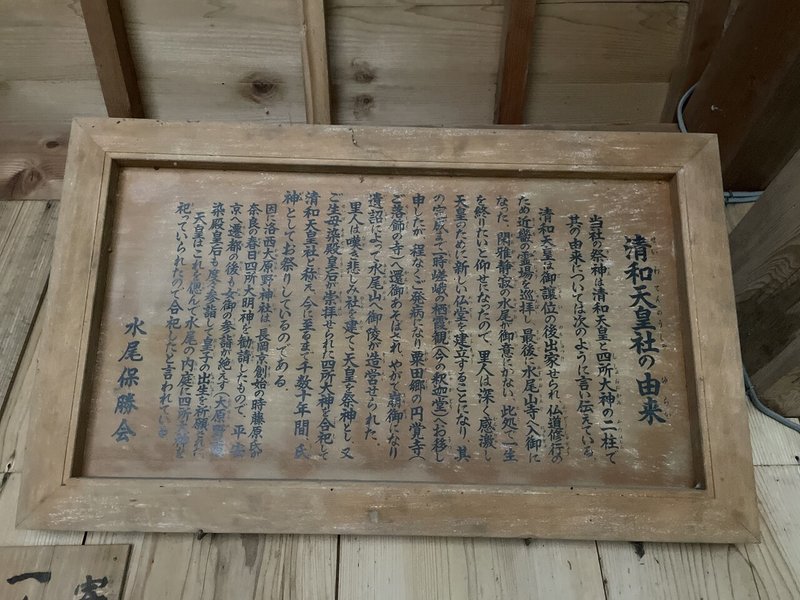 清和天皇社の由来
当社の祭神は清和天皇と四所大神の二柱で
其の由来については次のように言い伝えている
清和天皇は御譲位の後出家せられ仏道修行の
ため近畿の霊場を巡拝し最後に水尾山寺へ入御に
なった 閑雅静寂の水尾が御意にかない 此処で一生
を終りたいと仰せになったので、里人は深く感激し
天皇のために新しい仏堂を建立することになり、其
の完成まで一時嵯峨の栖霞観(今の釈迦堂)へお移し
申したが 程なくご発病になり 粟田郷の円覚寺(
ご落飾の寺)へ還御あそばされ、やがて崩御になり
遺詔によって水尾山へ御陵が造営せられた
里人は嘆き悲しみ社を建て、天皇を祭神とし 又
ご生母染殿皇后が崇拝せられた四所大神を合祀して
清和天皇社と称え 今に至るまで千数十年間、氏
神としてお祭りしているのである
因に洛西大原野神社は 長岡京創始の時藤原氏が
奈良の春日四所大明神を勧請したもので、平安
京へ遷都の後も女御の参詣が絶えず(大原野
染殿皇后も度々参詣して皇子の出生を祈願された
天皇はこれを偲んで水尾の内庭に四所大神を
祀っていられたので合祀したと言われている
水尾保勝会